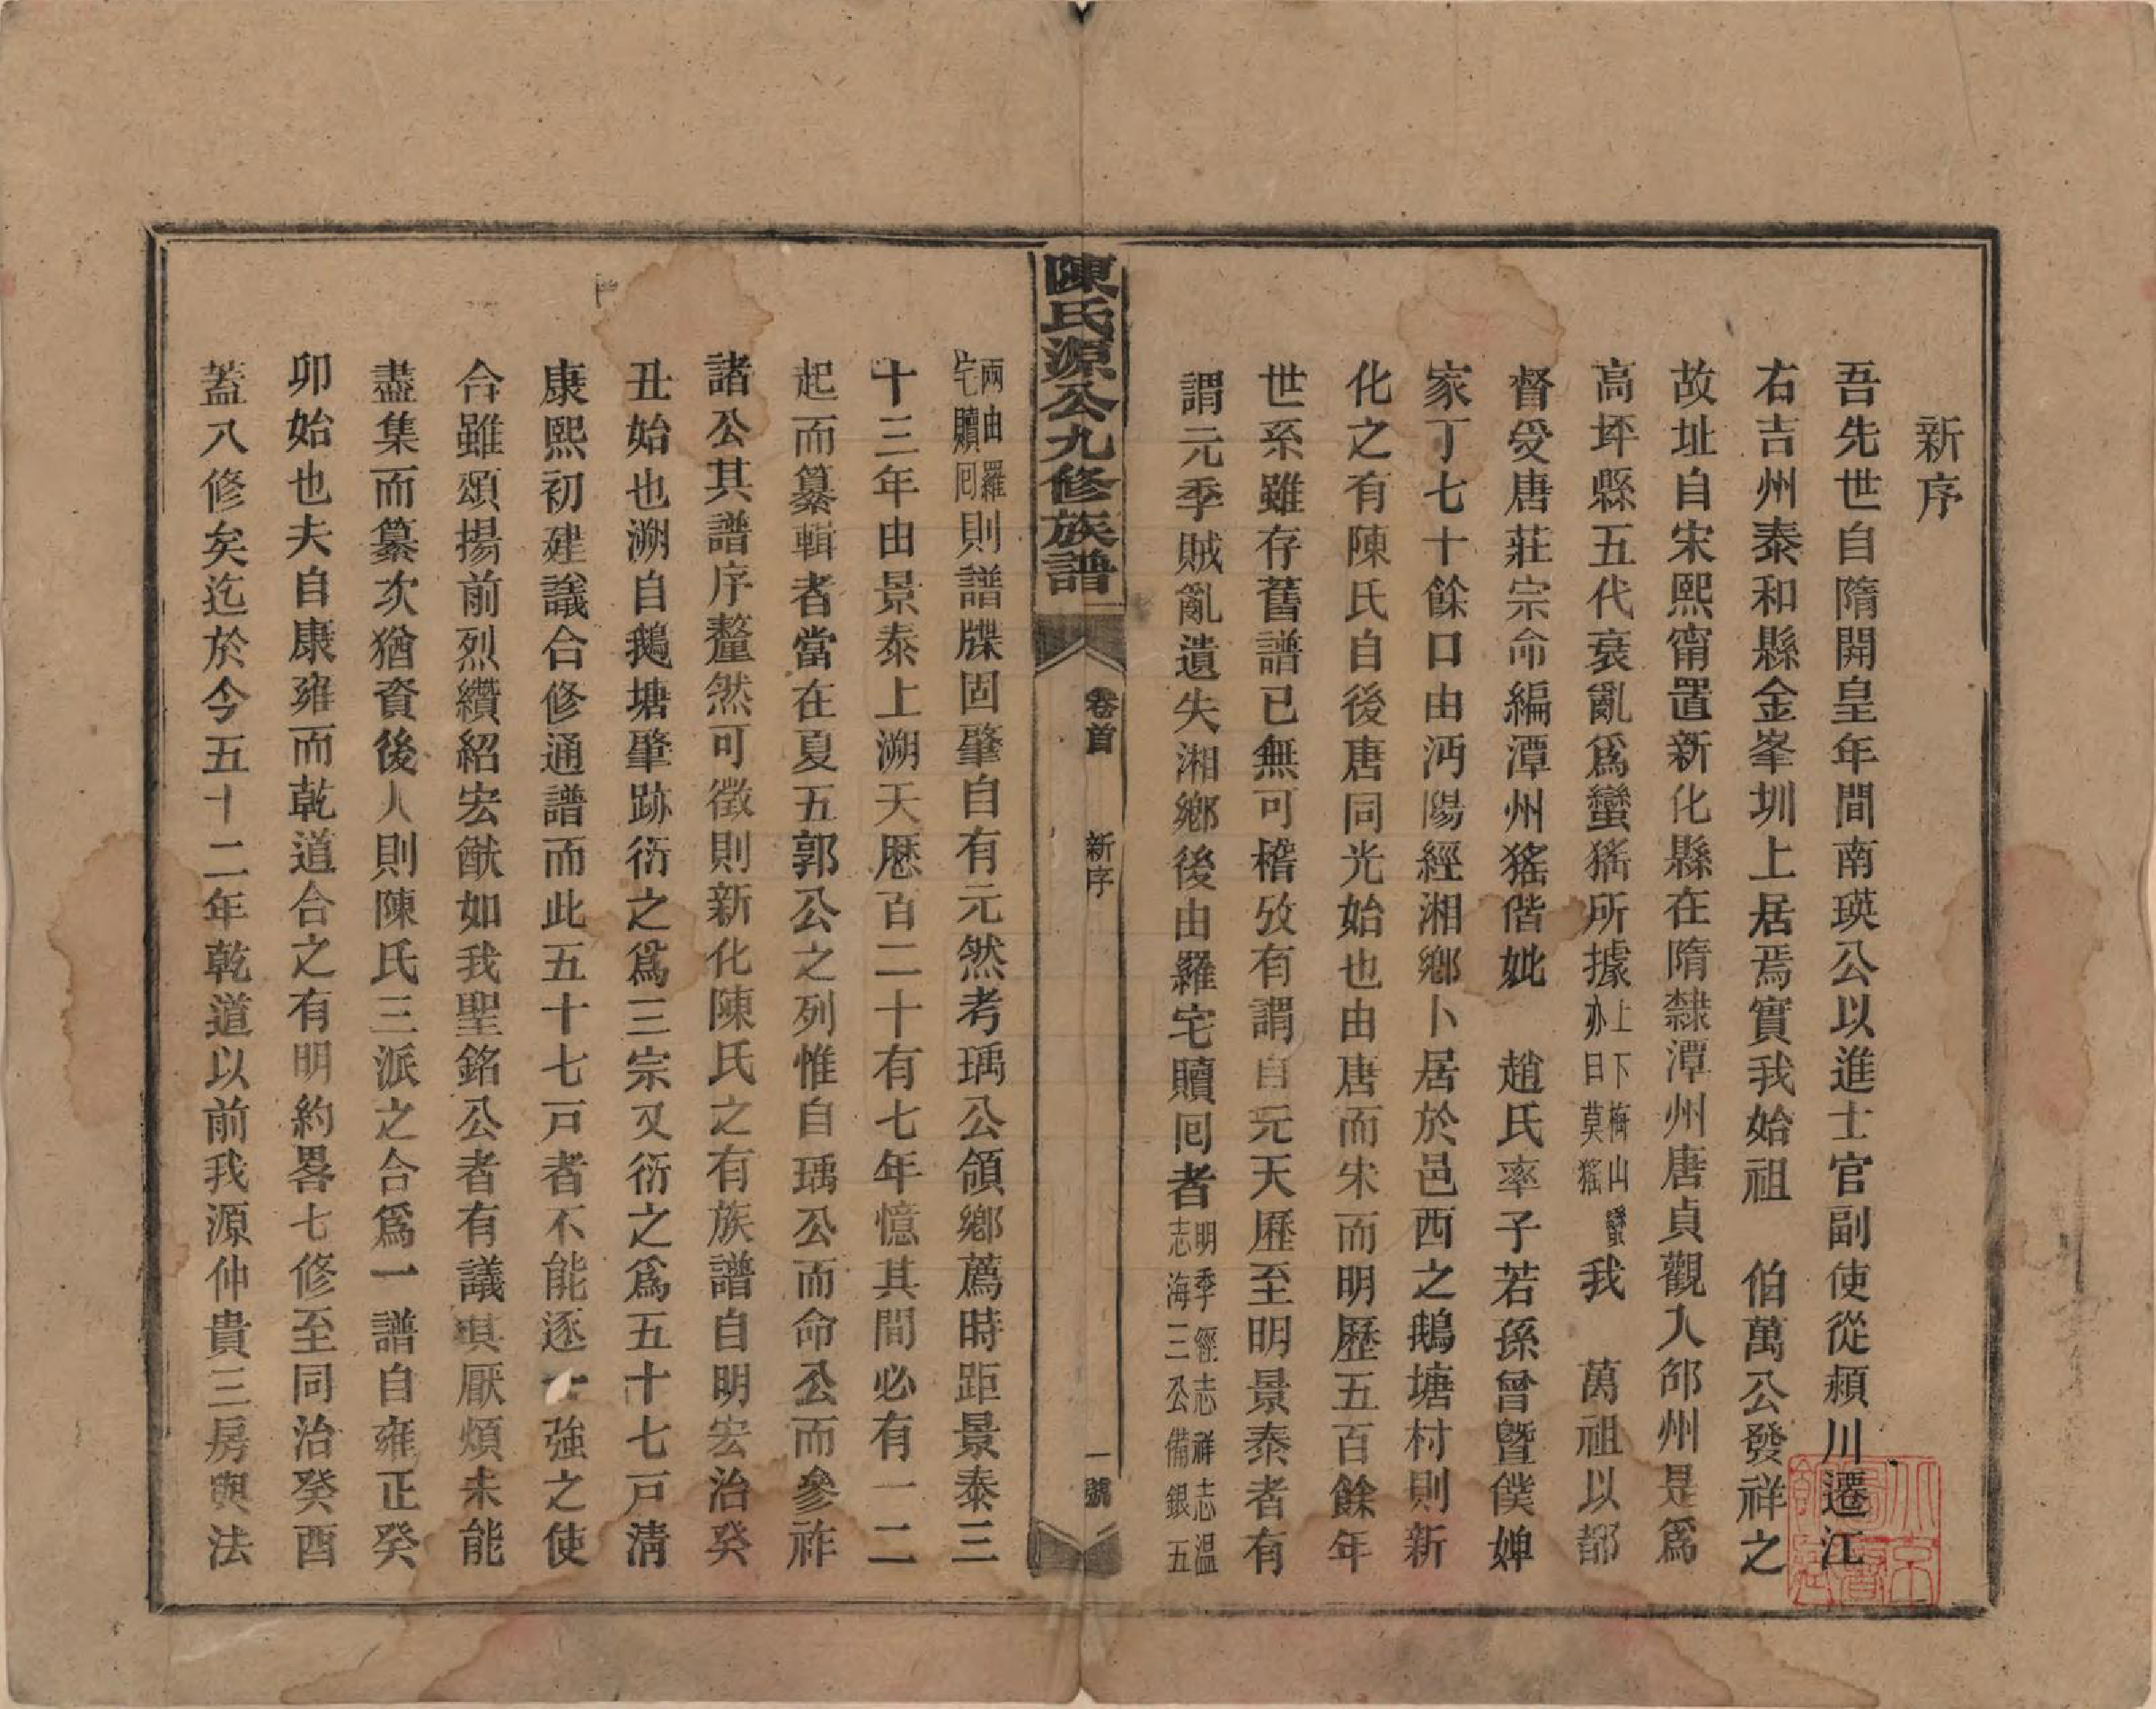 新序
吾先世自隋開皇年間南瑛公以進士官副使從潁川遷江
右吉州泰和縣金峯圳上居焉實我始祖　伯萬公發祥之
故址自宋熙甯置新化縣在隋隸潭州唐貞觀入邵州是爲
高坪縣五代衰亂爲蠻猺所據上下梅山蠻亦曰莫猺我　萬祖以都
督受唐莊宗命編潭州猺偕妣　趙氏率子若孫曾暨僕婢
家丁七十餘口由沔陽經湘鄉卜居於邑西之鵝塘村則新
化之有陳氏自後唐同光始也由唐而宋而明歷五百餘年
世系雖存舊譜已無可稽攷有謂自元天歷至明景泰者有
謂元季賊亂遺失湘鄉後由羅宅贖囘者明季經志祥志溫志海三公備銀五
陳氏源公九修族譜
卷首
新序
一號
兩由羅宅贖囘則譜牒固肇自有元然考瑀公領鄉薦時距景泰三
十三年由景泰上溯天歷百二十有七年憶其間必有一二
起而纂輯者當在夏五郭公之列惟自瑀公而命公而參祚
諸公其譜序釐然可徵則新化陳氏之有族譜自明宏治癸
丑始也溯自鵝塘肇跡衍之爲三宗又衍之爲五十七戸淸
康熙初建議合修通譜而此五十七戸者不能逐一強之使
合雖頌揚前烈纘紹宏猷如我聖銘公者有議其厭煩未能
盡集而纂次猶資後人則陳氏三派之合爲一譜自雍正癸
卯始也夫自康雍而乾道合之有明約畧七修至同治癸酉
蓋八修矣迄於今五十二年乾道以前我源仲貴三房與法